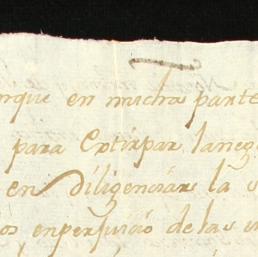 nque en mucha parte
para Extirpar, la neg
en diligenciar la
os en perjuicio de las